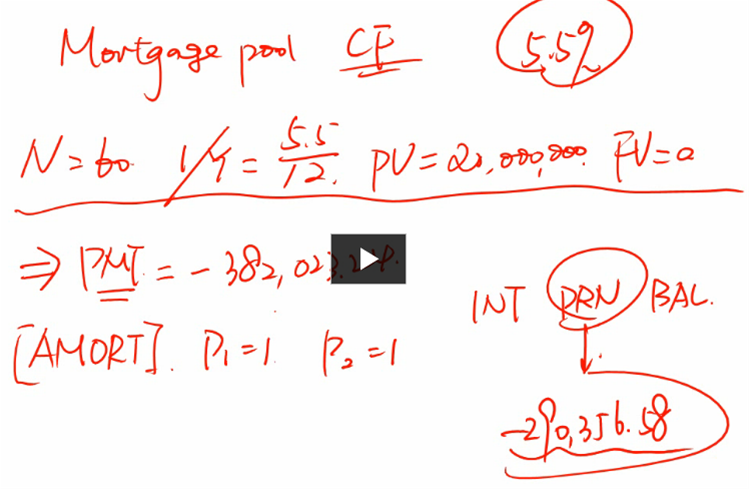 Mortgage pool CF 5.5%
N = 60 I/Y = 5.5/12 PV = 20,000,000 FV = 0
⇒ PMT = - 382,023.
INT PRN BAL.
[AMORT]. P₁ = 1 P₂ = 1
-290,356.58